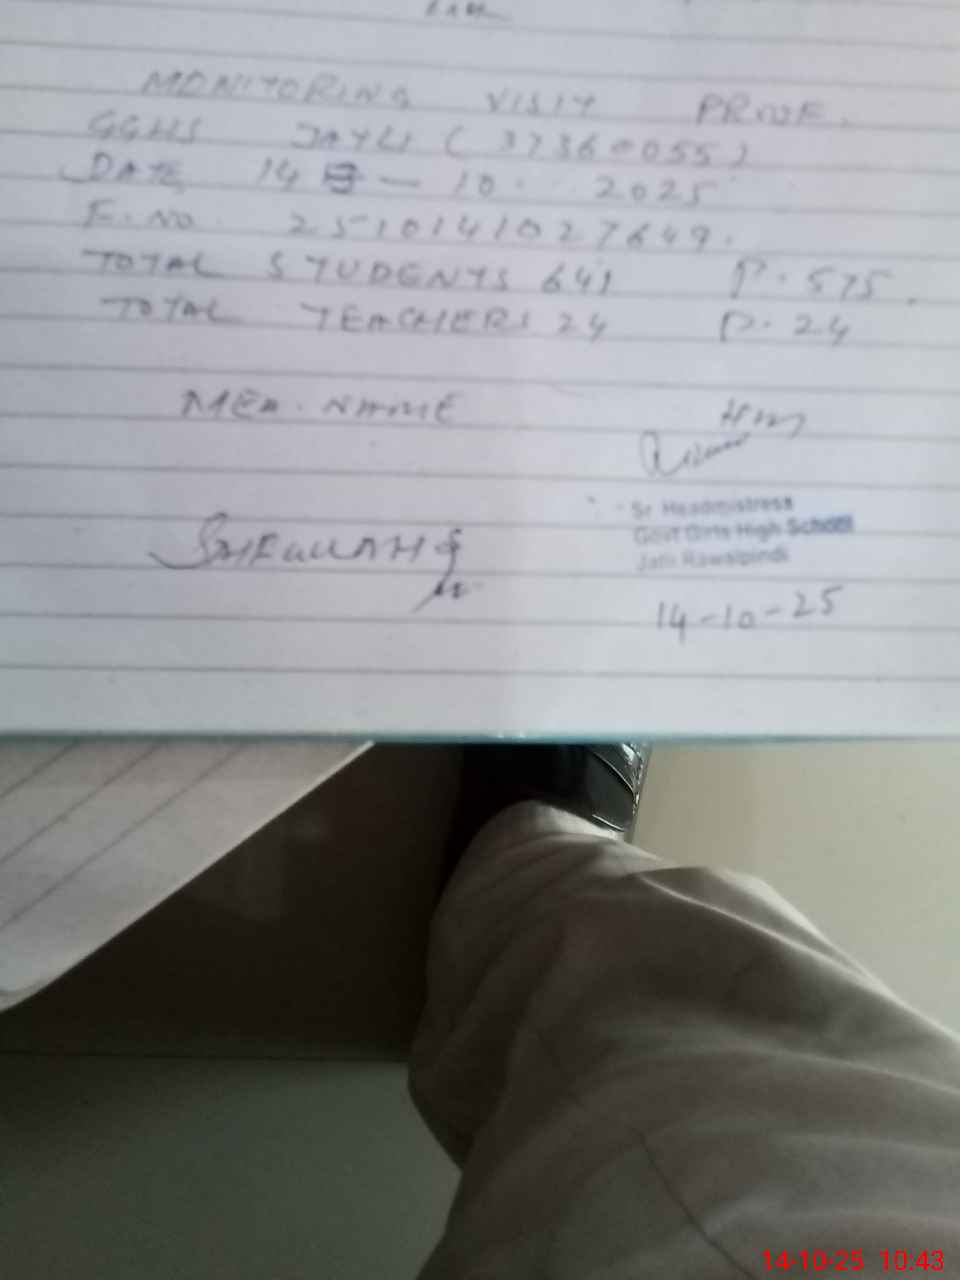 MONITORING VISIT PROOF.
GGHS JATLI (37360055)
DATE 14 - 10. 2025
F. NO. 2510141027649.
TOTAL STUDENTS 641 P. 575.
TOTAL TEACHERS 24 P. 24
MEA. NAME
Sr. Headmistress
Govt Girls High School
Jatli Rawalpindi
14-10-25
14-10-25 10:43